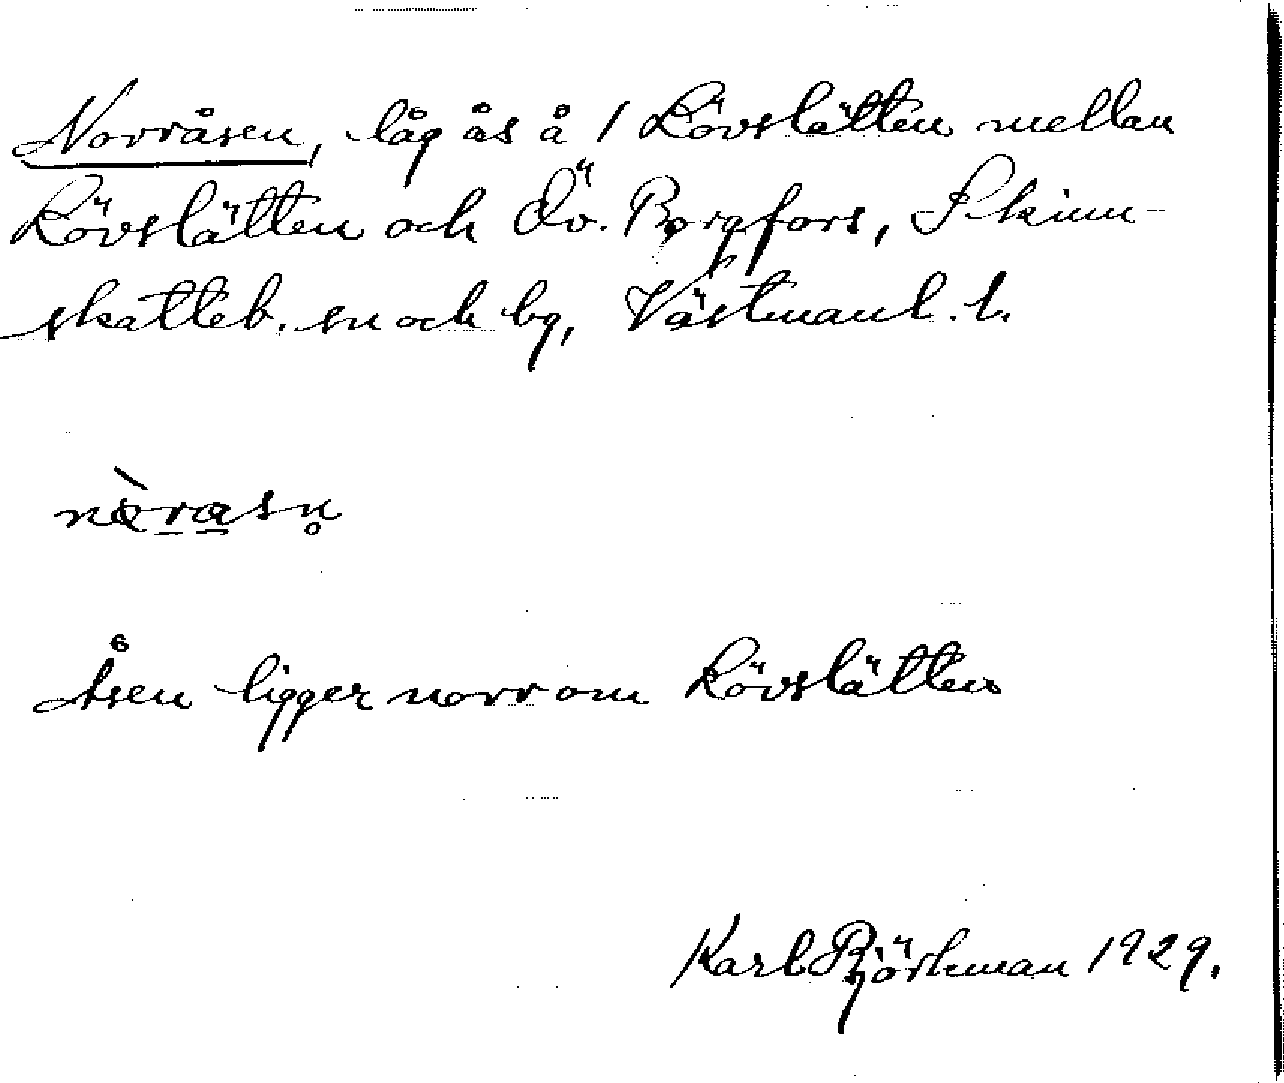 Norråsen, låg ås å 1 Lövslätten mellan
Lövslätten och Öv. Borgfors, Skinn-
skatteb. sn och bg, Västmanl. l.
nòrasn̥
Åsen ligger norr om Lövslätten
Karl Björkman 1929.